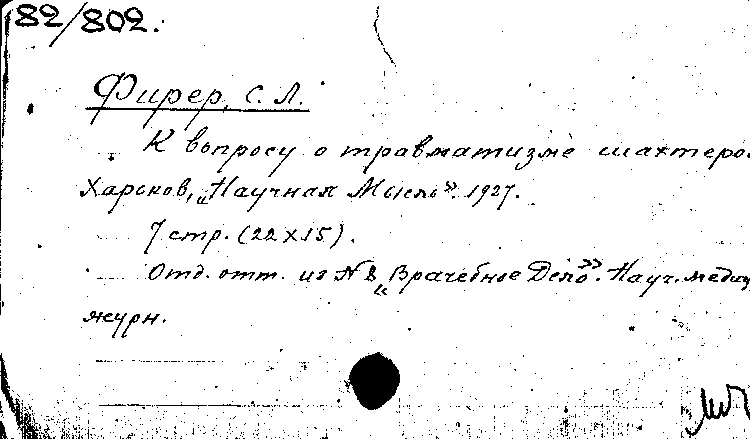 82/802.
Фирер, С. Л.
К вопросу о травматизме шахтеро
Харьков, „Научная Мысль". 1927.
7 стр. (22 x 15).
Отд. отт. из № 8 „Врачебное Дело". Науч. медиц
журн.